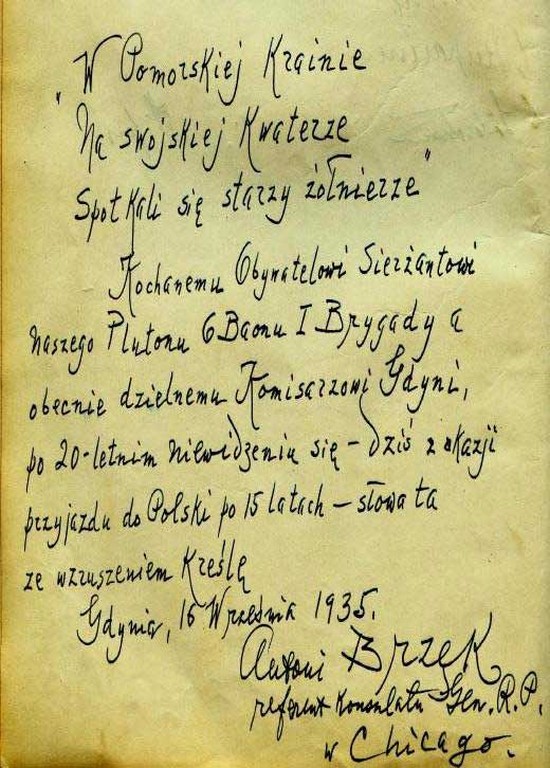 "W Pomorskiej Krainie
Na swojskiej Kwaterze
Spotkali się starzy żołnierze"
Kochanemu Obywatelowi Sierżantowi
naszego Plutonu 6 Baonu I Brygady a
obecnie dzielnemu Komisarzowi Gdyni,
po 20-letnim niewidzeniu się – dziś z okazji
przyjazdu do Polski po 15 latach – słowa ta
ze wzruszeniem Kreślę
Gdynia, 16 Września 1935.
Antoni Brzęk
referent Konsulatu Gen. R.P.
w Chicago.